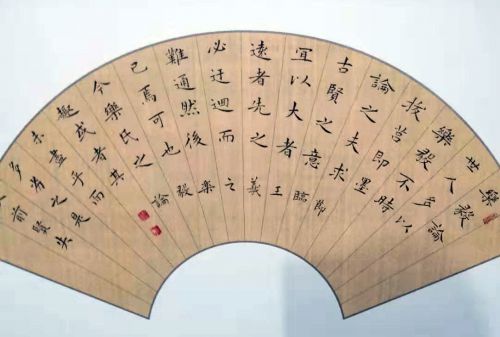 樂毅論
世人多以
樂毅不時
拔莒即墨
論之夫求
古賢之意
宜以大者
遠者先之
必迂迴而
難通然後
已焉可也
今樂氏之
趣或者其
未盡乎而
多劣之是
前賢失
節臨王羲之樂毅論